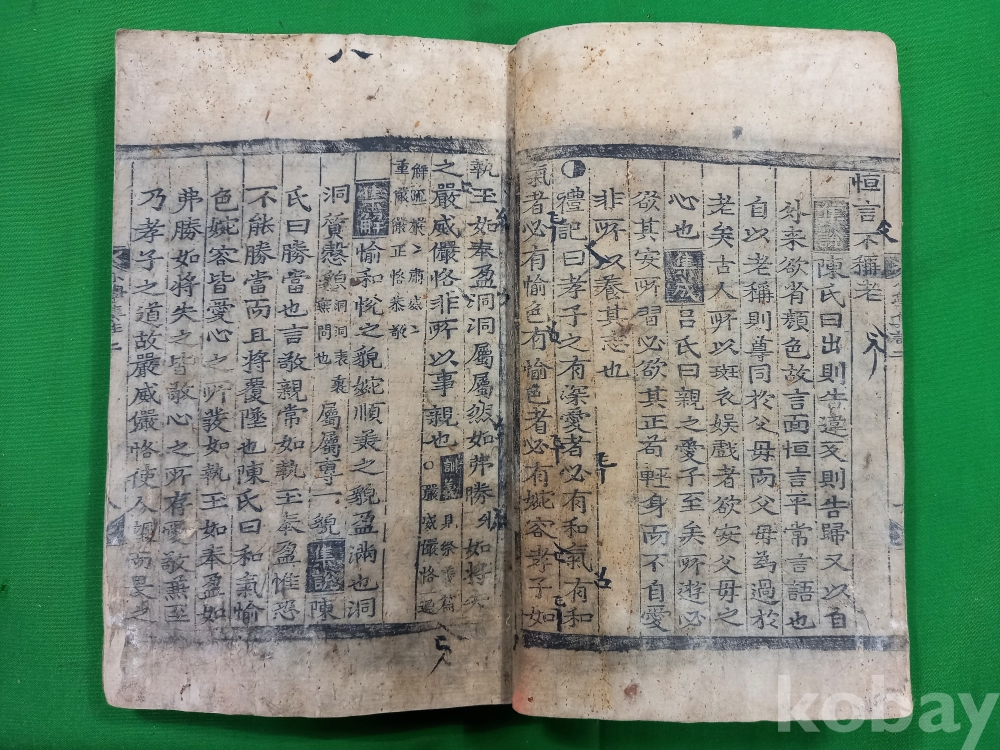 恒言不稱老
集說 陳氏曰出則告違反則告歸又以自
外来欲省顔色故言面恒言平常言語也
自以老稱則尊同於父母而父母為過於
老矣古人所以斑衣娱戲者欲安父母之
心也 集成 呂氏曰親之愛子至矣所遊必
欲其安所習必欲其正苟輕身而不自愛
非所以養其志也
禮記曰孝子之有深愛者必有和氣有和
氣者必有愉色有愉色者必有婉容孝子如
執玉如奉盈洞洞屬屬然如弗勝如將失
之嚴威儼恪非所以事親也 訓義 見祭義篇
○嚴威儼恪
集解 愉和悅之貌婉順美之貌盈滿也洞
洞質慤貌 屬屬專一貌 集說 陳
氏曰勝當也言敬親常如執玉奉盈惟恐
不能勝當而且將覆墜也陳氏曰和氣愉
色婉容皆愛心之所發如執玉如奉盈如
弗勝如將失之皆敬心之所存愛敬兼至
乃孝子之道故嚴威儼恪使人望而畏之
kobay